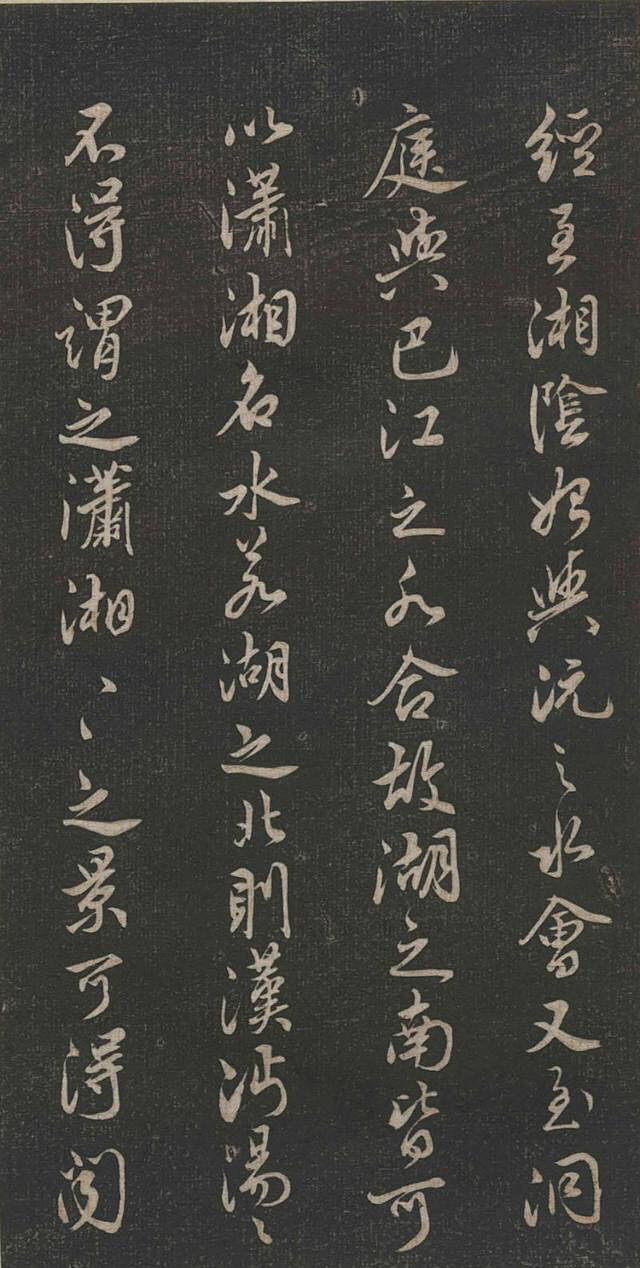 經至湘陰始與沅之水會又至洞
庭與巴江之水合故湖之南皆可
以瀟湘名水若湖之北則漢沔湯〻
不得謂之瀟湘〻之景可得聞